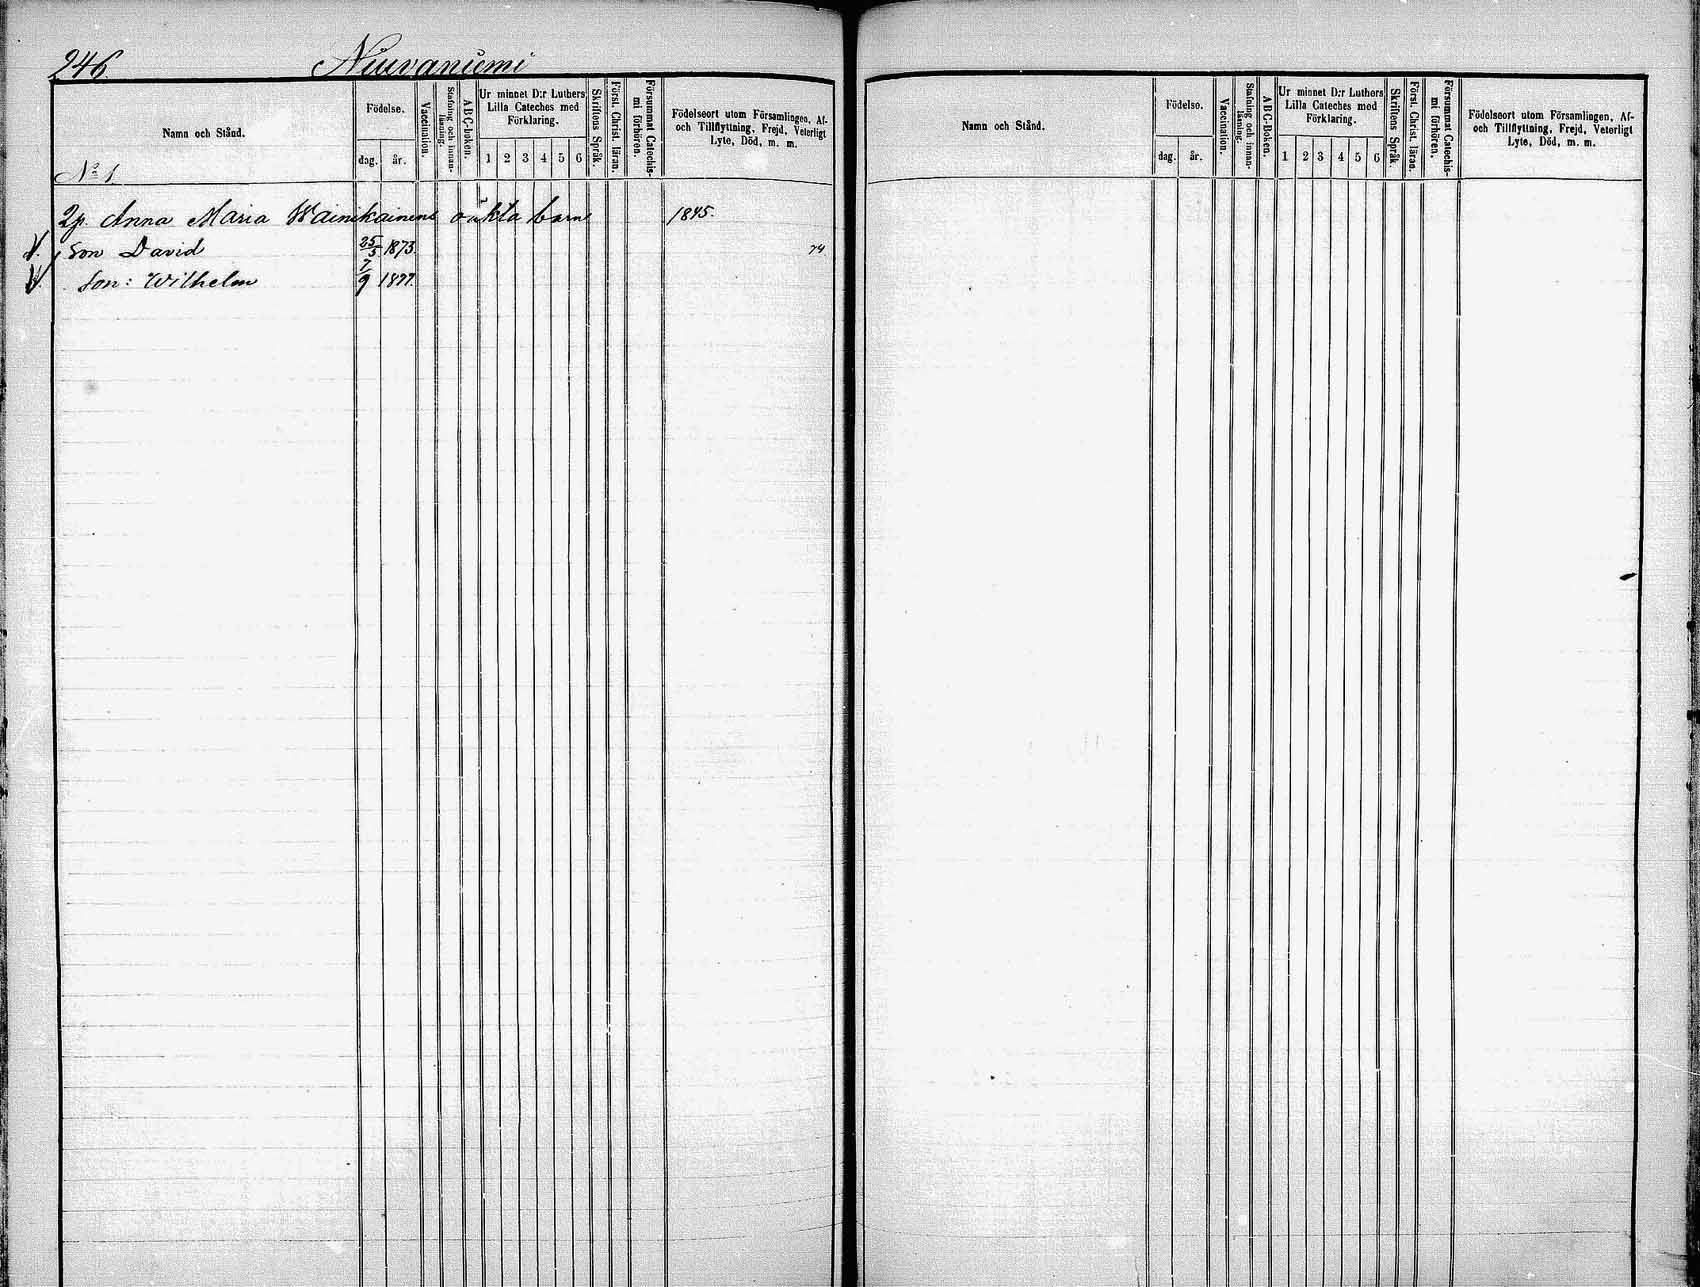 246 Niuvaniemi
Namn och Stånd.
Födelse.
dag. år.
Vaccination.
Stafning och innan-läsning.
ABC-boken.
Ur minnet D:r Luthers Lilla Cateches med Förklaring.
1 2 3 4 5 6
Skriftens Språk.
Först. Christ. läran.
Försummat Catechis-mi förhören.
Födelseort utom Församlingen, Af- och Tillflyttning, Frejd, Veterligt Lyte, Död, m. m.
No 1
2p. Anna Maria Wainikainens oäkta barn 1845.
Son David 25/5 1873. 74
Son: Wilhelm 7/9 1877.
Namn och Stånd.
Födelse.
dag. år.
Vaccination.
Stafning och innan-läsning.
ABC-Boken.
Ur minnet D:r Luthers Lilla Cateches med Förklaring.
1 2 3 4 5 6
Skriftens Språk.
Först. Christ. läran.
Försummat Catechis-mi förhören.
Födelseort utom Församlingen, Af- och Tillflyttning, Frejd, Veterligt Lyte, Död, m. m.